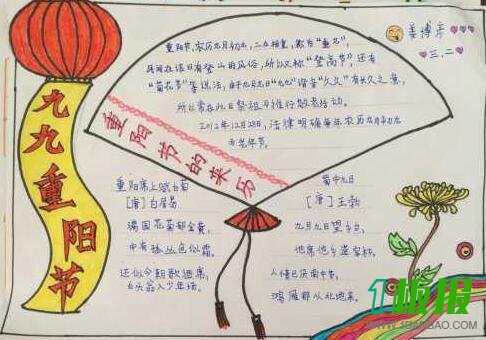 九九重阳节
重阳节,农历九月初九,二九相重,称为"重九",
民间在该日有登山的风俗,所以又称"登高节"还有
"菊花节"等说法,由于九月九日"九九"谐音"久久"有长久之意,
所以常在此日祭祖与推行敬老活动。
2012年12月28日,法律明确每年农历九月初九
为老年节。
姜博彦
三.二
重阳节的来历
重阳席上赋白菊
[唐]白居易
满园花菊郁金黄,
中有孤丛色似霜。
还似今朝歌酒席,
白头翁入少年场。
蜀中九日
[唐]王勃
九月九日望乡台,
他席他乡送客杯。
人情已厌南中苦,
鸿雁那从北地来。
1板报
WWW.1BANBAO.COM